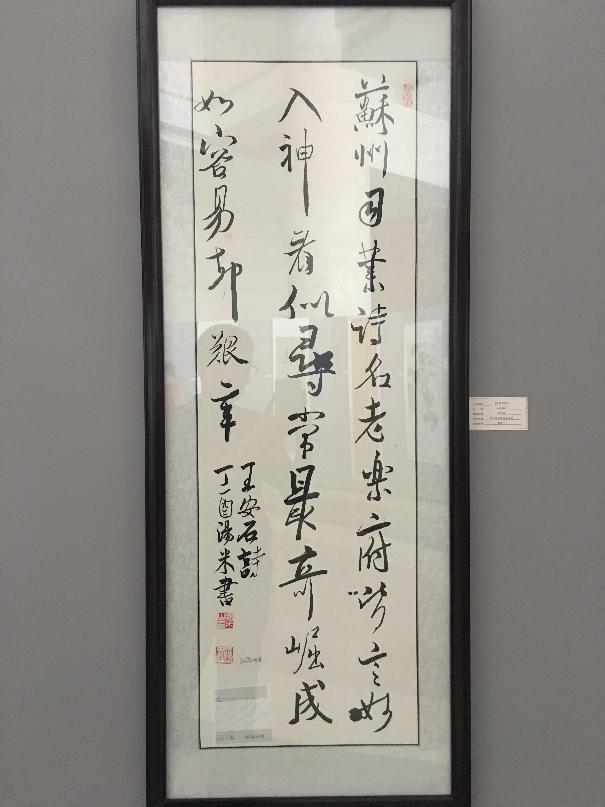 蘇州司業詩名老樂府皆言妙
入神看似尋常最奇崛成
如容易却艱辛
王安石詩
丁酉湯米書